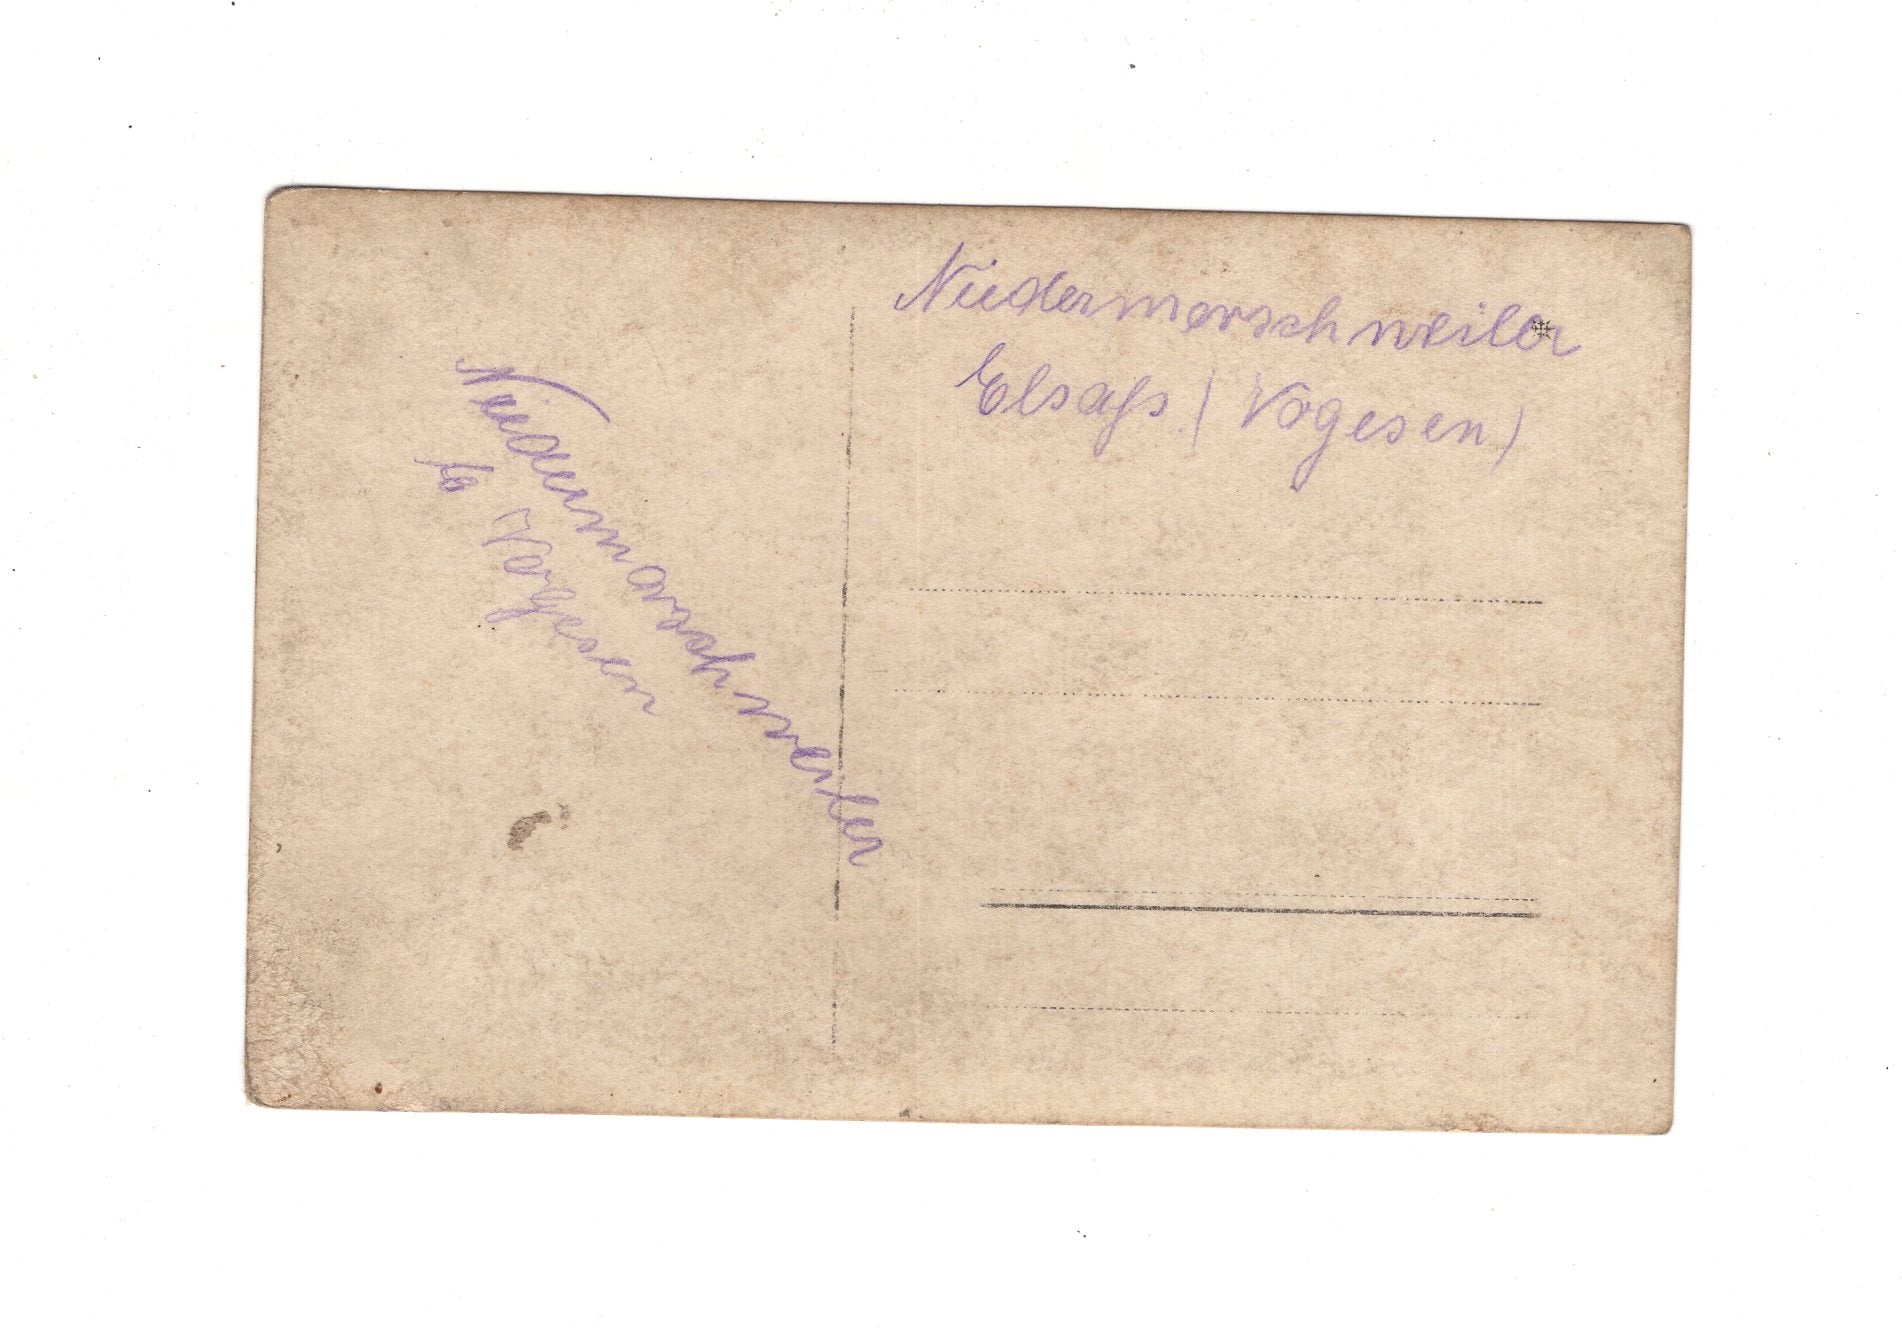 Niedermorschweiler
Vogesen
Niedermorschweiler
Elsaß (Vogesen)